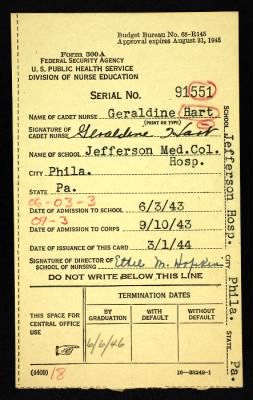 Budget Bureau No. 68-R145
Approval expires August 31, 1945
Form 300A
FEDERAL SECURITY AGENCY
U. S. PUBLIC HEALTH SERVICE
DIVISION OF NURSE EDUCATION
SERIAL NO. 91551
NAME OF CADET NURSE Geraldine Hart
(PRINT OR TYPE)
SIGNATURE OF CADET NURSE Geraldine Hart
NAME OF SCHOOL Jefferson Med. Col. Hosp.
CITY Phila.
STATE Pa.
06-03-3
DATE OF ADMISSION TO SCHOOL 6/3/43
09-3
DATE OF ADMISSION TO CORPS 9/10/43
DATE OF ISSUANCE OF THIS CARD 3/1/44
SIGNATURE OF DIRECTOR OF SCHOOL OF NURSING Ethel M. Hopkins
DO NOT WRITE BELOW THIS LINE
THIS SPACE FOR CENTRAL OFFICE USE
TERMINATION DATES
BY GRADUATION
WITH DEFAULT
WITHOUT DEFAULT
6/6/46
(4409) 18
16-38249-1
SCHOOL Jefferson Hosp. CITY Phila. STATE Pa.